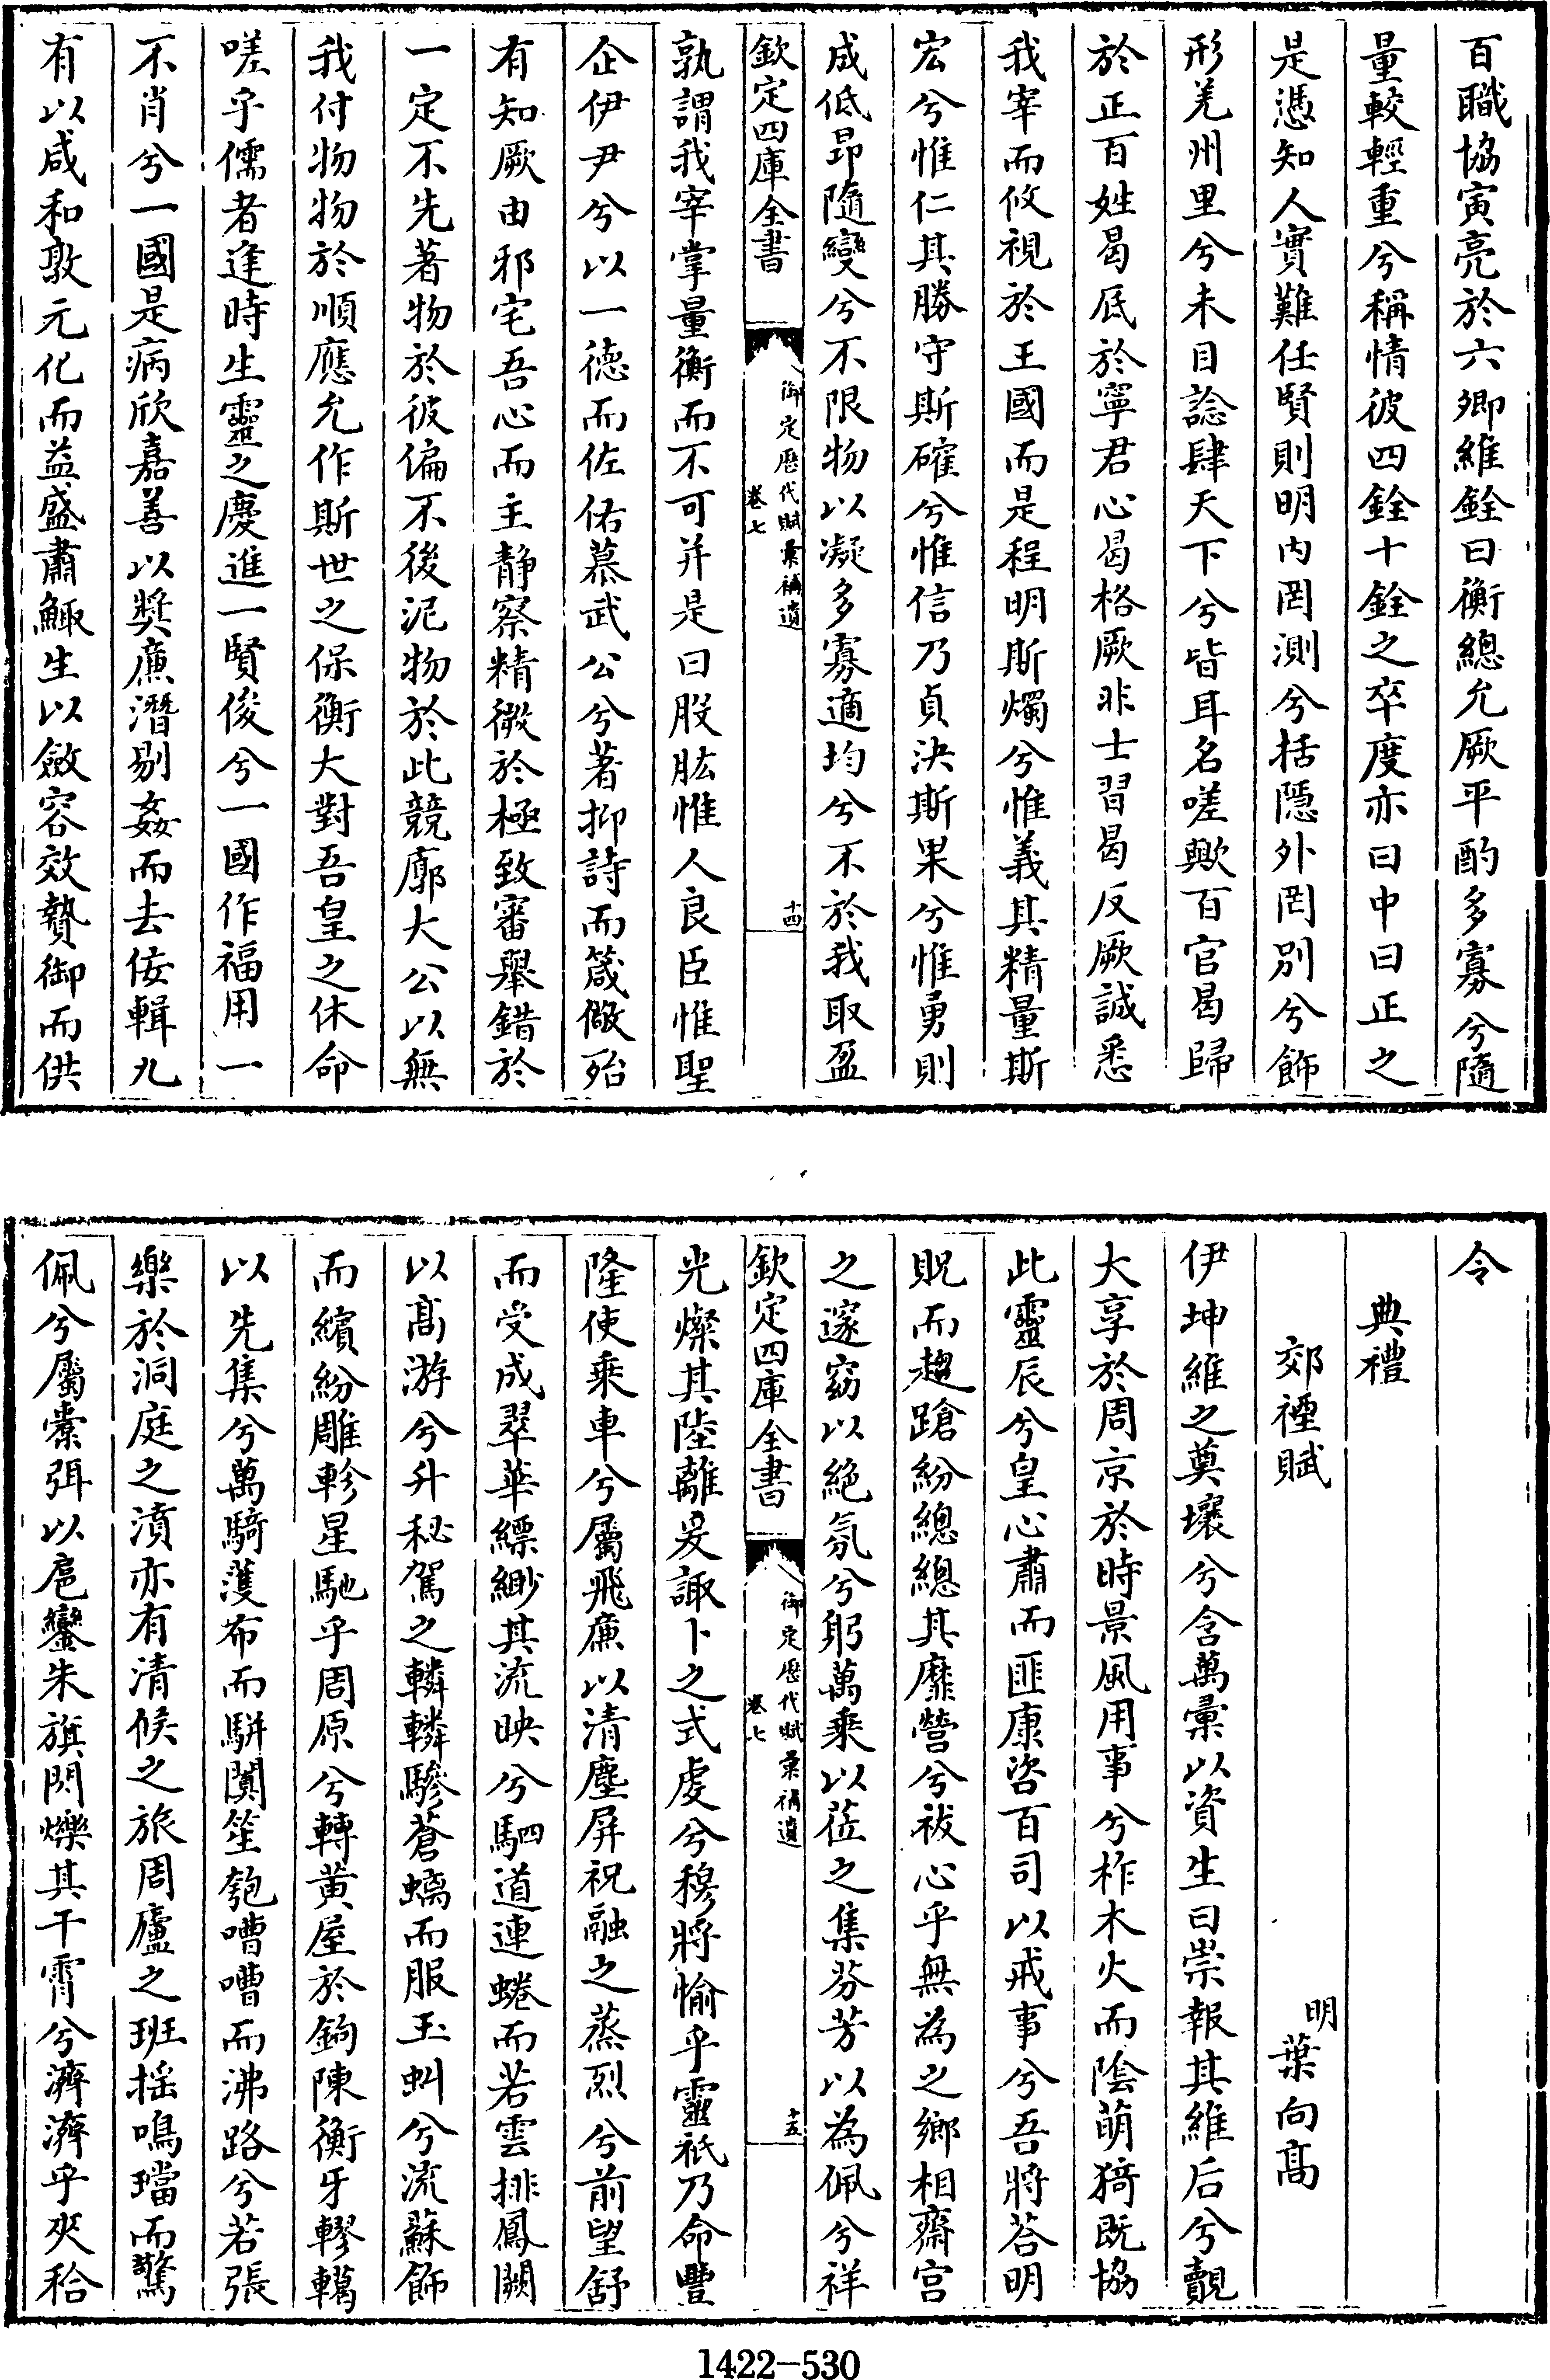 百職協寅亮於六卿維銓曰衡總允厥平酌多寡兮隨
量較輕重兮稱情彼四銓十銓之卒度亦曰中曰正之
是憑知人實難任賢則明内罔測兮括隱外罔別兮飾
形羌州里兮未目諗肆天下兮皆耳名嗟歟百官曷歸
於正百姓曷底於寧君心曷格厥非士習曷反厥誠悉
我宰而攸視於王國而是程明斯燭兮惟義其精量斯
宏兮惟仁其勝守斯確兮惟信乃貞決斯果兮惟勇則
成低昂隨變兮不限物以凝多寡適均兮不於我取盈
欽定四庫全書
御定歷代賦彙補遺
卷七
十四
孰謂我宰掌量衡而不可并是曰股肱惟人良臣惟聖
企伊尹兮以一德而佐佑慕武公兮著抑詩而箴儆殆
有知厥由邪宅吾心而主静察精微於極致審舉錯於
一定不先著物於彼偏不後泥物於此競廓大公以無
我付物物於順應允作斯世之保衡大對吾皇之休命
嗟乎儒者逢時生靈之慶進一賢俊兮一國作福用一
不肖兮一國是病欣嘉善以獎廉潛剔姦而去佞輯九
有以咸和敦元化而益盛肅鯫生以斂容效贄御而供
令
典禮
郊禋賦
明
葉向高
伊坤維之奠壤兮含萬彙以資生曰崇報其維后兮覿
大享於周京於時景風用事兮柞木火而陰萌猗既協
此靈辰兮皇心肅而匪康咨百司以戒事兮吾將荅明
貺而趨蹌紛總總其靡營兮祓心乎無為之鄉相齋宫
之邃窈以絶氛兮躬萬乘以莅之集芬芳以為佩兮祥
欽定四庫全書
御定歷代賦彙補遺
卷七
十五
光燦其陸離爰諏卜之式虔兮穆將愉乎靈祇乃命豐
隆使乘車兮屬飛廉以清塵屏祝融之蒸烈兮前望舒
而受成翠華縹緲其流映兮駟道連蜷而若雲排鳳闕
以高游兮升秘駕之轔轔驂蒼螭而服玉虯兮流蘇飾
而繽紛雕軫星馳乎周原兮轉黄屋於鉤陳衡牙轇轕
以先集兮萬騎濩布而駢闐笙匏嘈嘈而沸路兮若張
樂於洞庭之濆亦有清候之旅周廬之班揺鳴璫而驚
佩兮屬櫜弭以扈鑾朱旗閃爍其干霄兮濟濟乎夾秴
1422-530